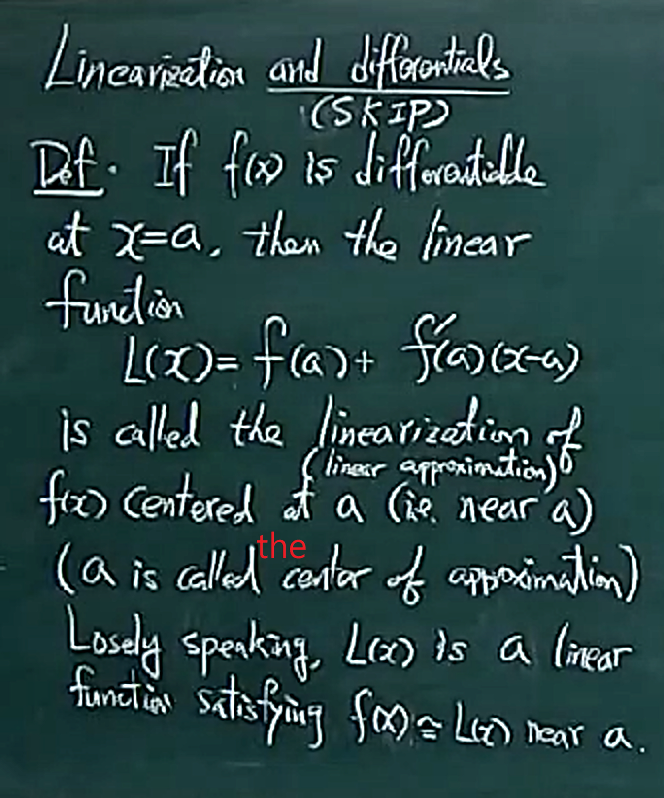 Linearization and differentials
(SKIP)
Def. If f(x) is differentiable
at x=a, then the linear
function
L(x)= f(a)+ f'(a)(x-a)
is called the linearization of
(linear approximation)
f(x) centered at a (i.e. near a)
the
(a is called center of approximation)
Losely speaking, L(x) is a linear
function satisfying f(x)≅L(x) near a.